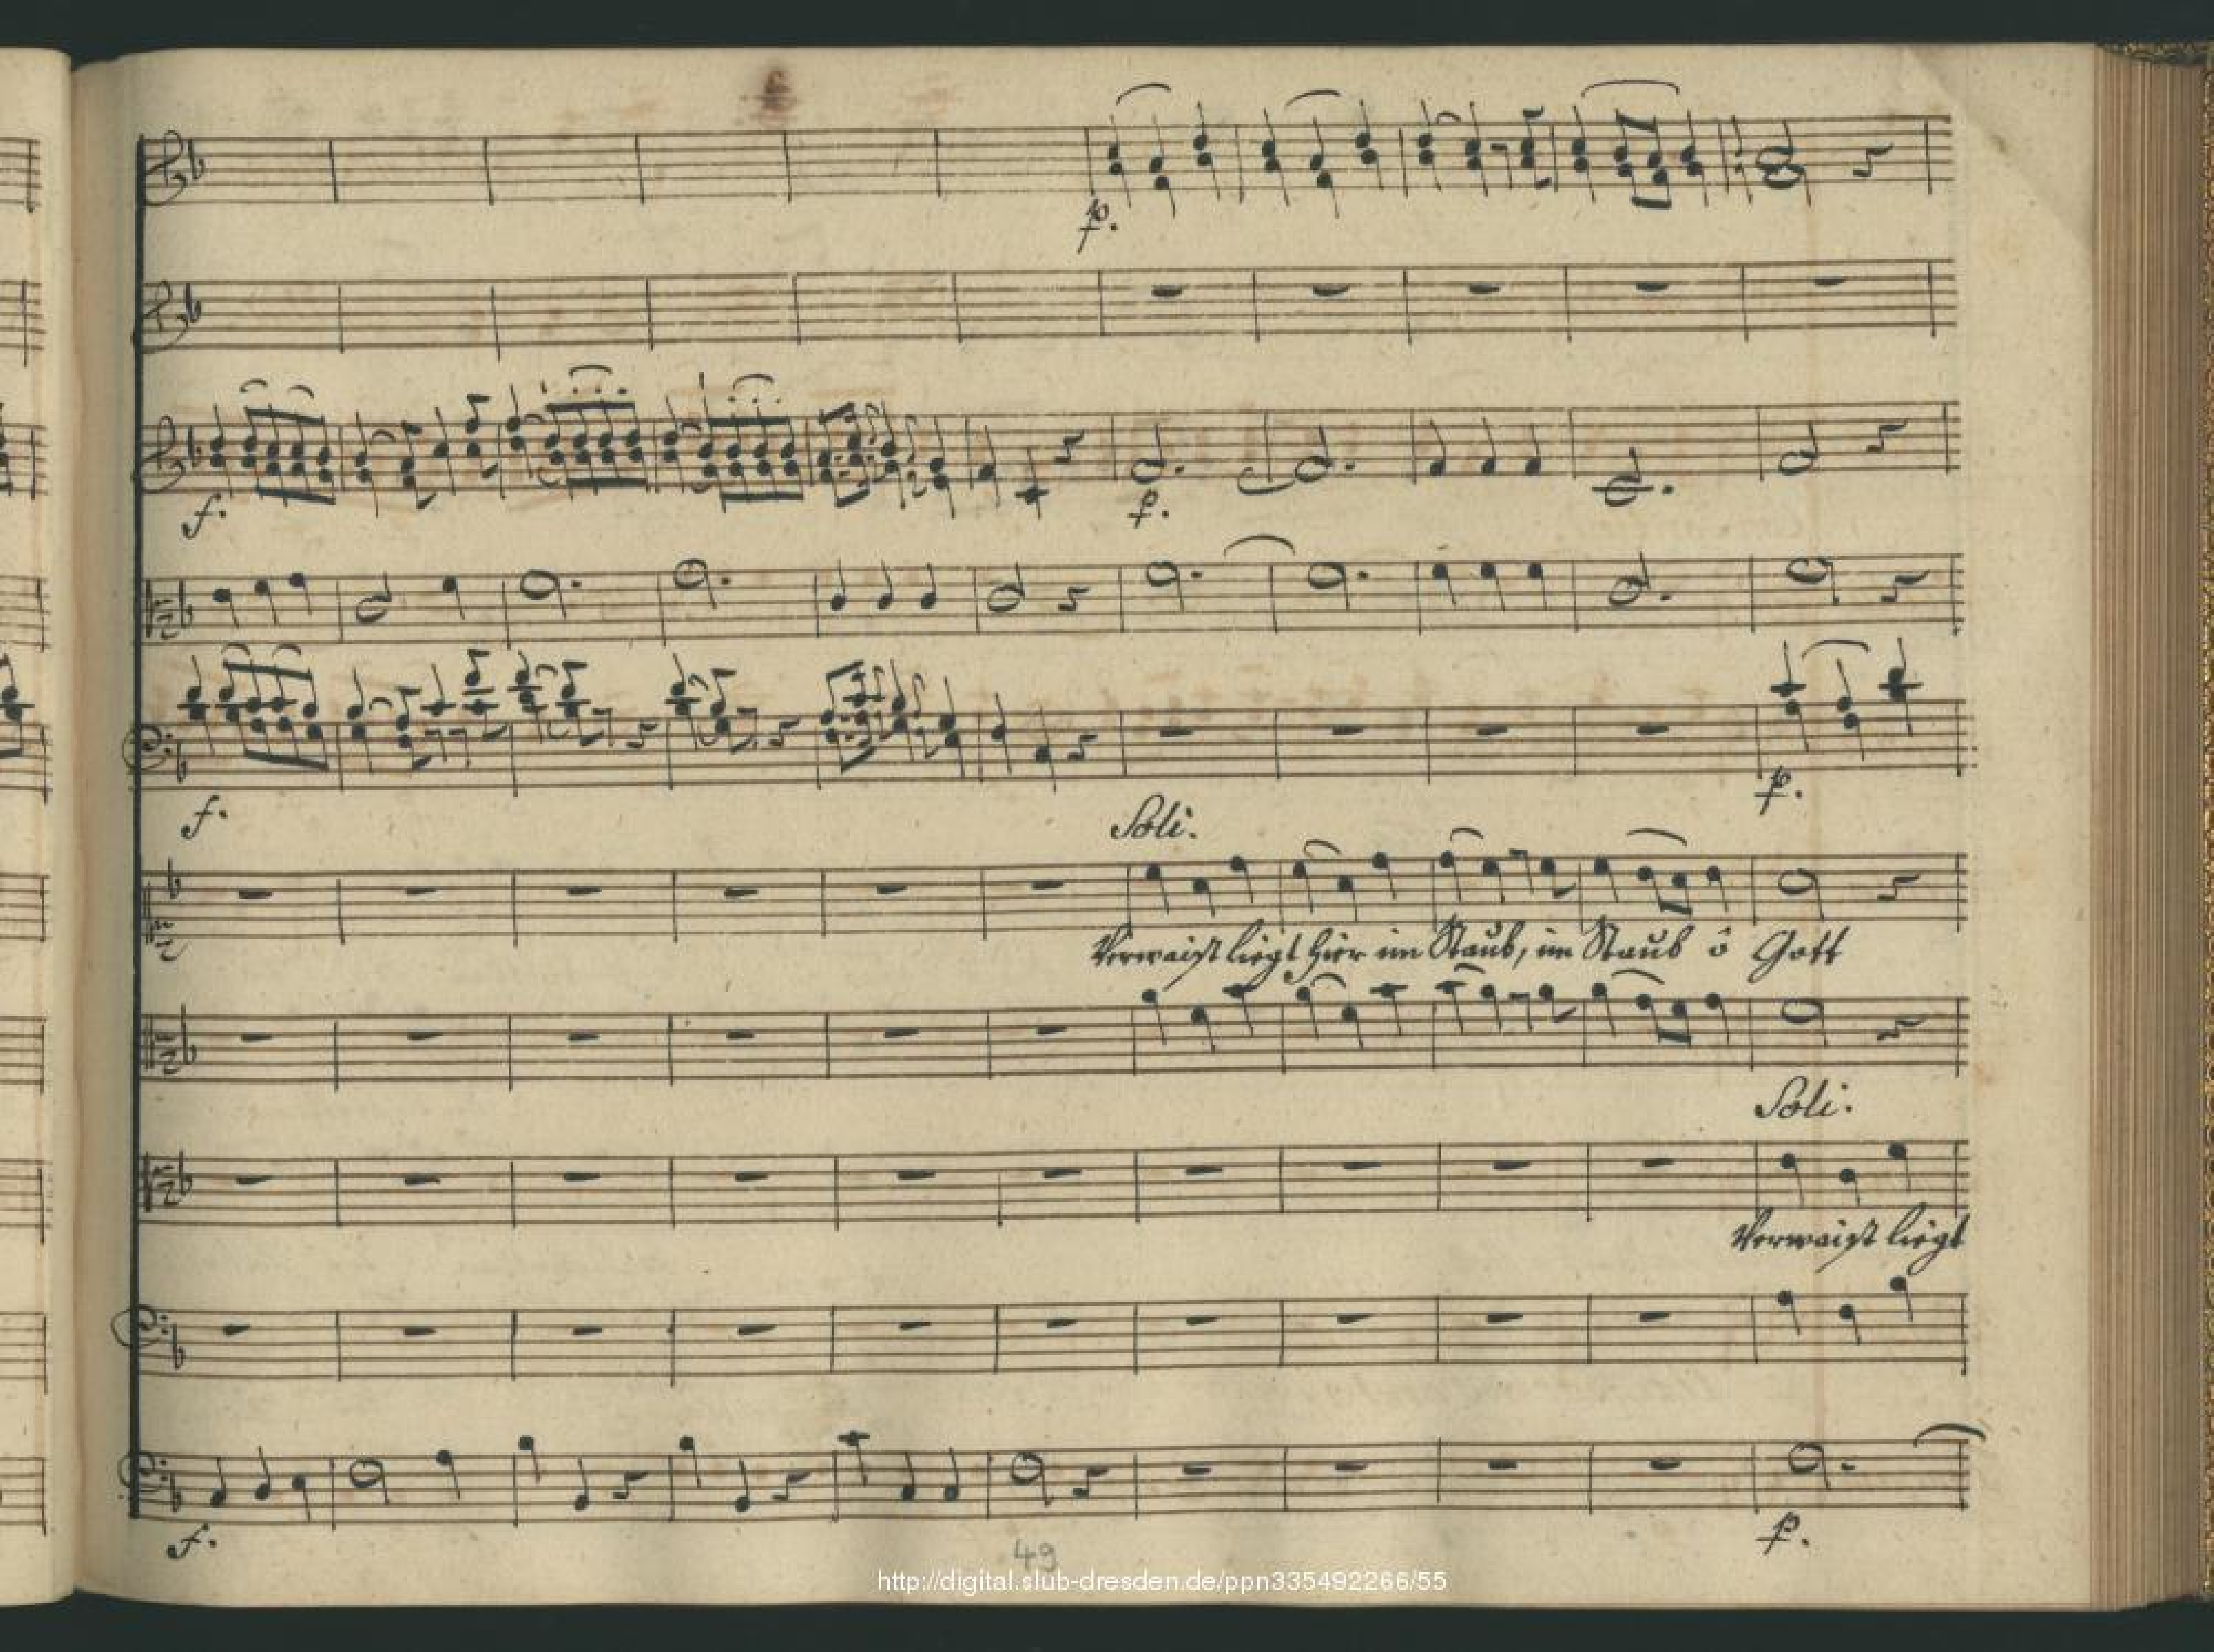 p.
f.
p.
f.
p.
Soli.
Verwaist liegt hier im Staub, im Staub ô Gott
Soli.
Verwaist liegt
f.
p.
49
http://digital.slub-dresden.de/ppn335492266/55